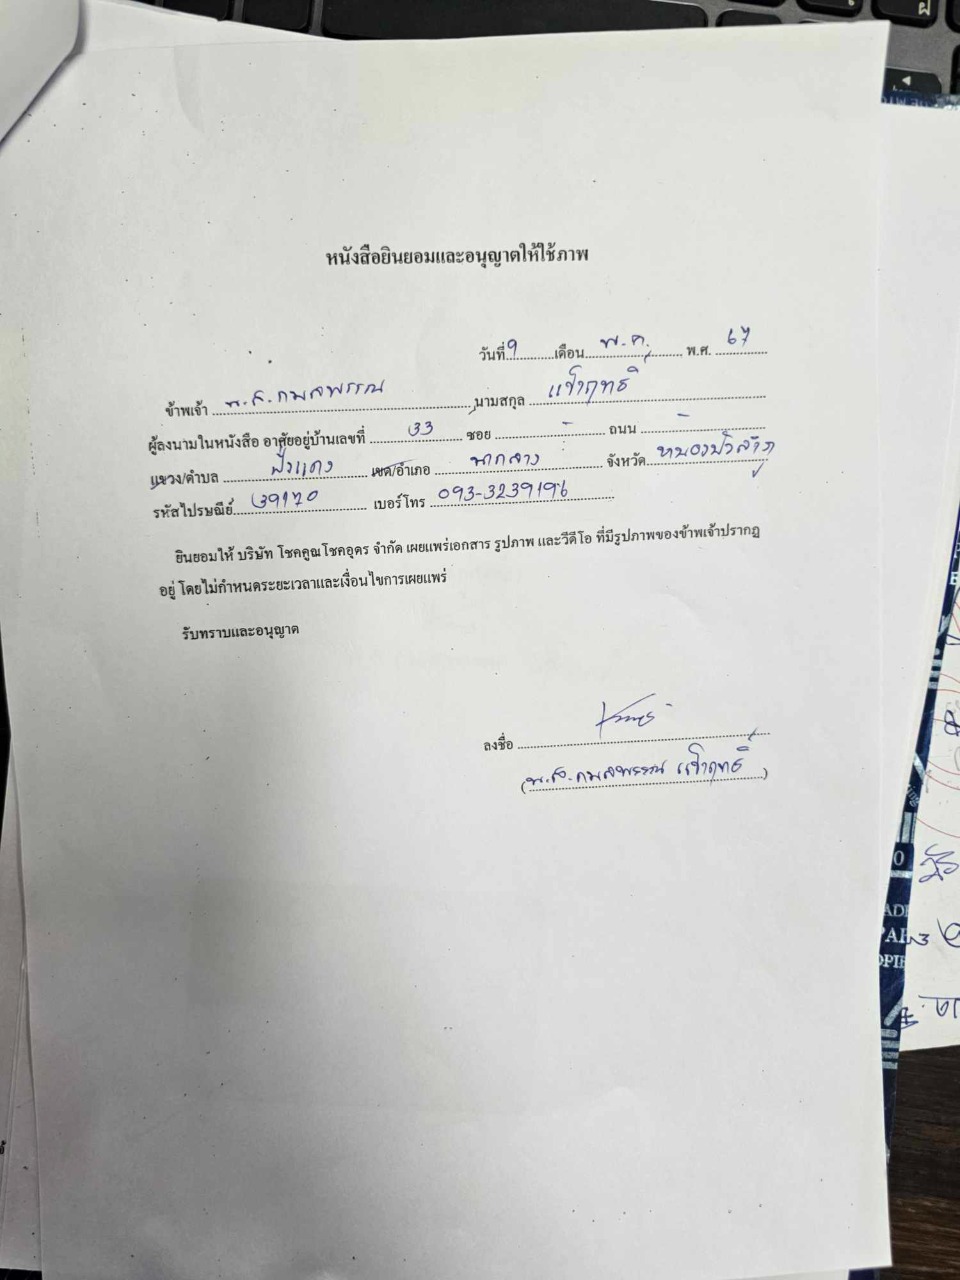 หนังสือยินยอมและอนุญาตให้ใช้ภาพ
วันที่ 9 เดือน พ.ค. พ.ศ. 67
ข้าพเจ้า น.ส.กมลพรรณ นามสกุล แข้าฤทธิ์
ผู้ลงนามในหนังสือ อาศัยอยู่บ้านเลขที่ 33 ซอย - ถนน -
แขวง/ตำบล ฝั่งแดง เขต/อำเภอ นากลาง จังหวัด หนองบัวลำภู
รหัสไปรษณีย์ 39170 เบอร์โทร 093-3239196
ยินยอมให้ บริษัท โชคคูณโชคอุดร จำกัด เผยแพร่เอกสาร รูปภาพ และวีดีโอ ที่มีรูปภาพของข้าพเจ้าปรากฏ
อยู่ โดยไม่กำหนดระยะเวลาและเงื่อนไขการเผยแพร่
รับทราบและอนุญาต
ลงชื่อ
(น.ส.กมลพรรณ แข้าฤทธิ์)